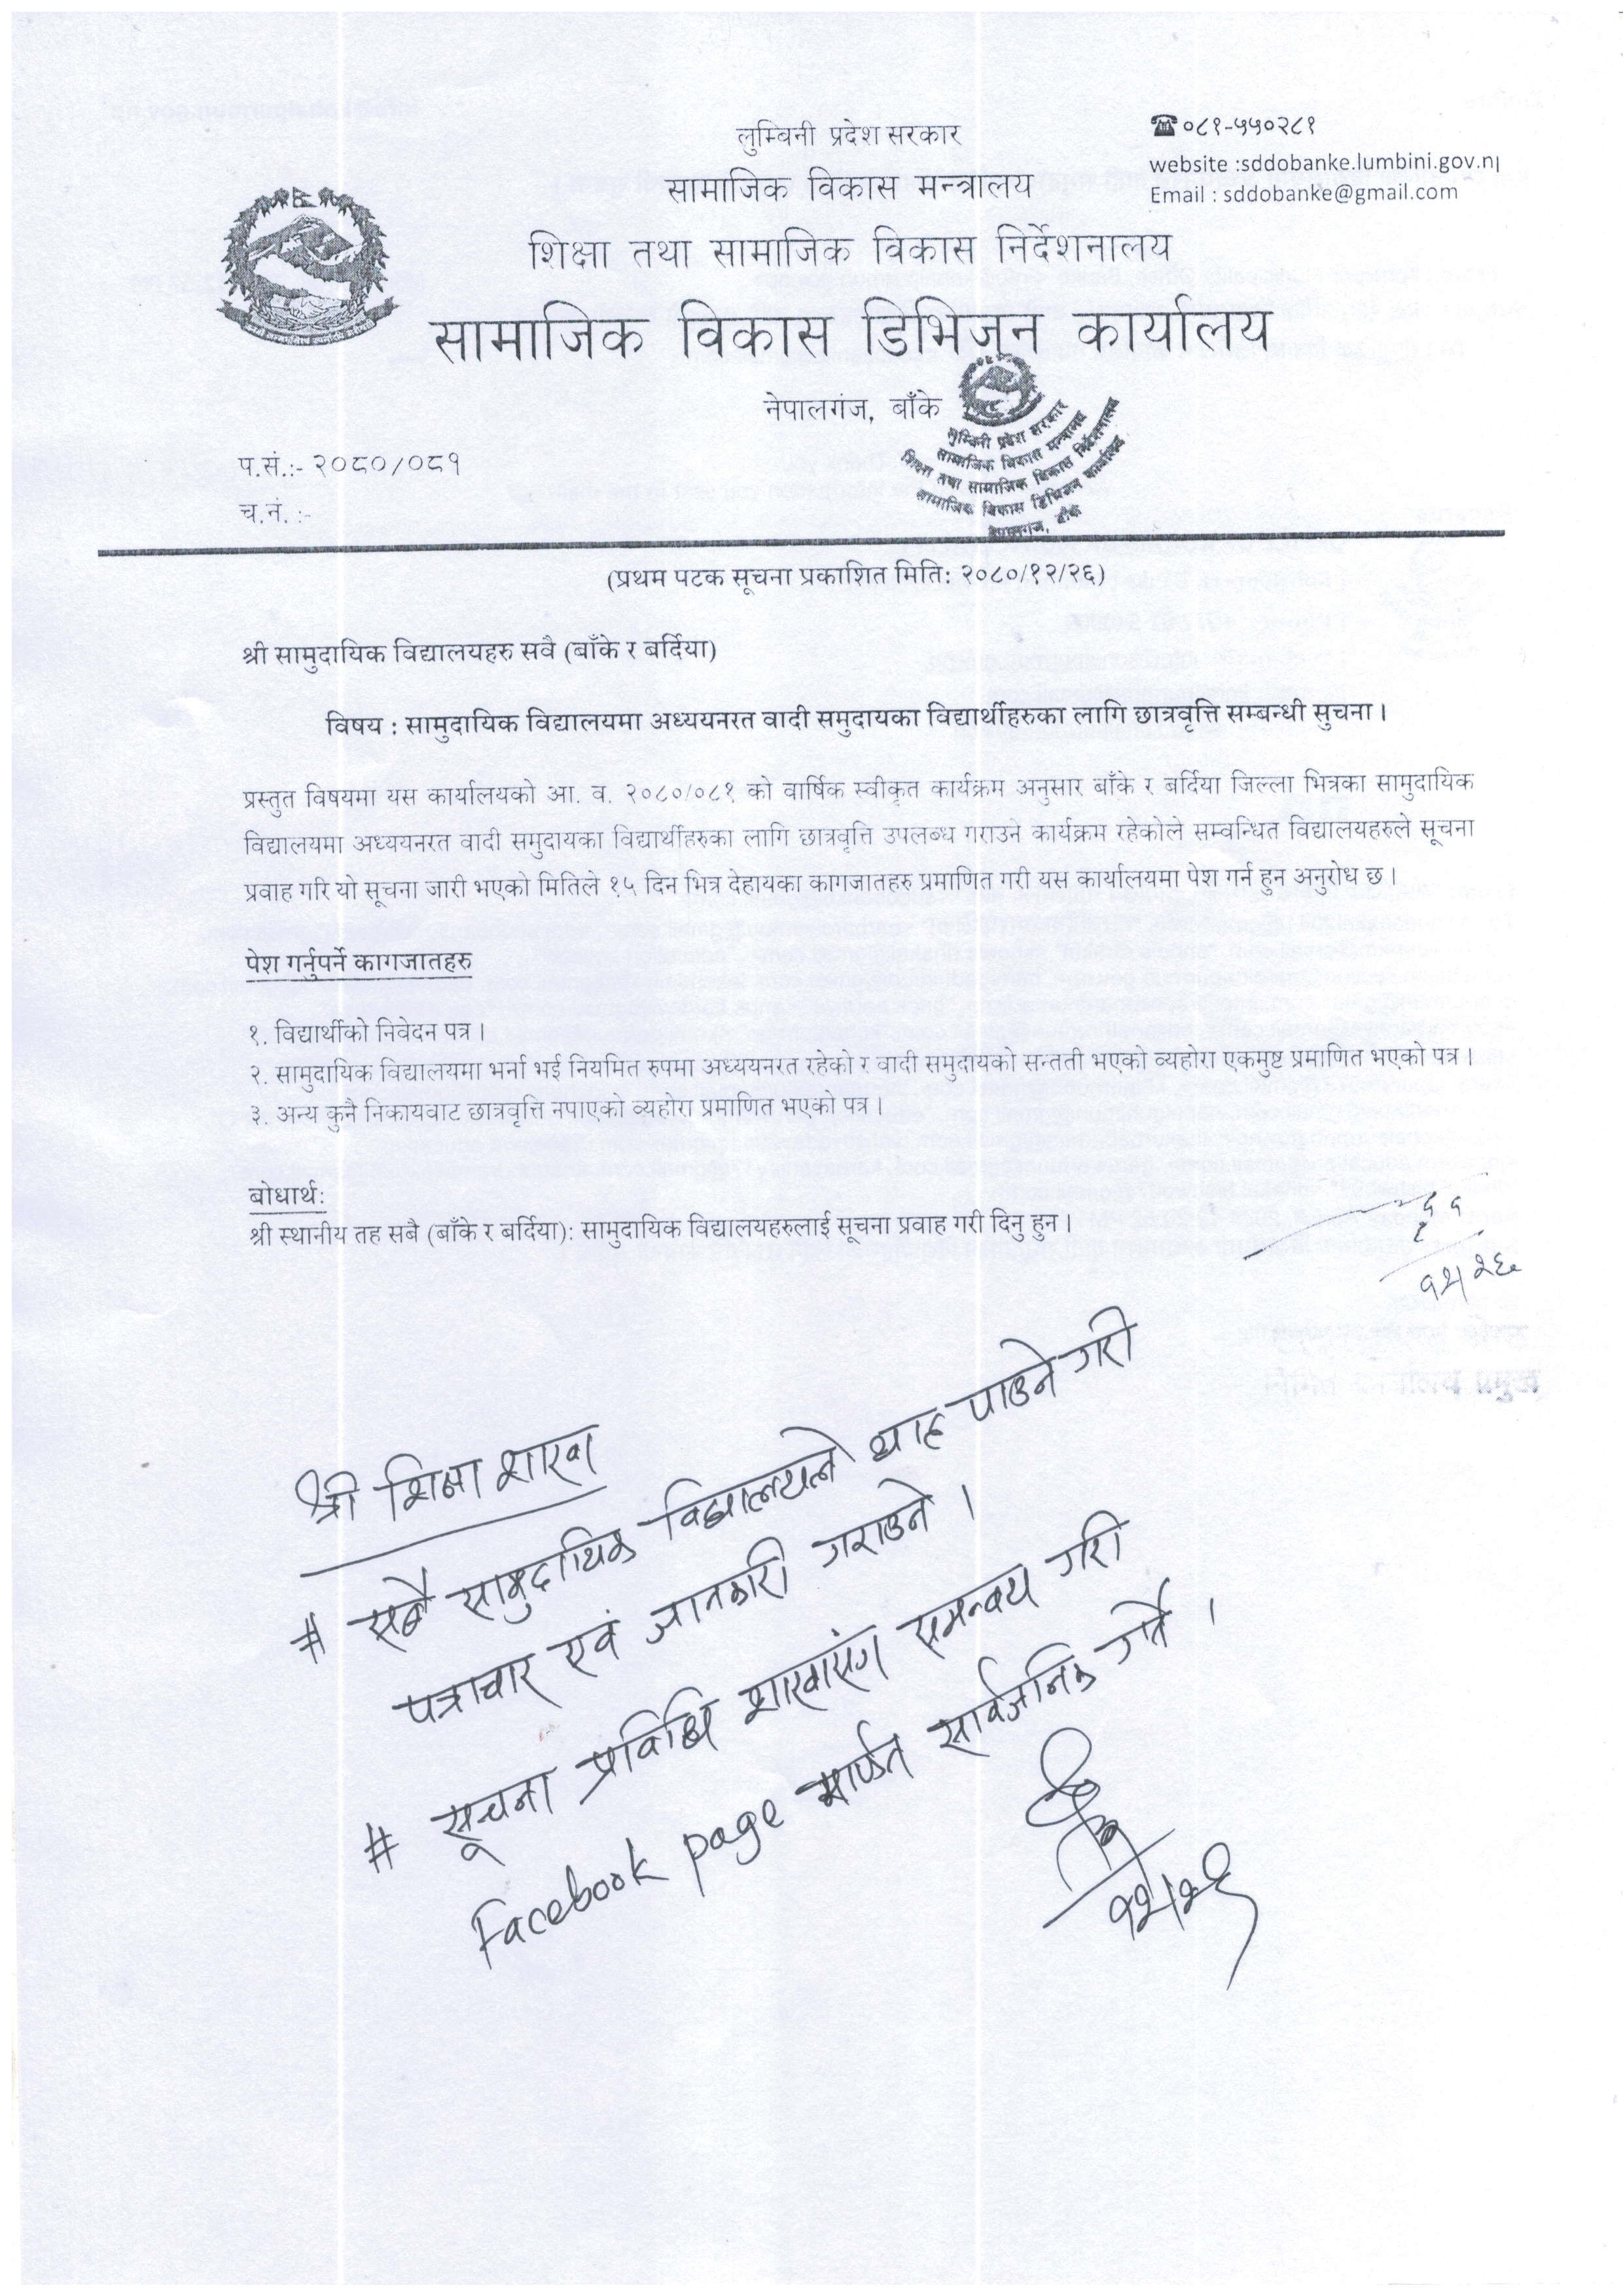 लुम्बिनी प्रदेश सरकार
सामाजिक विकास मन्त्रालय
शिक्षा तथा सामाजिक विकास निर्देशनालय
सामाजिक विकास डिभिजन कार्यालय
नेपालगंज, बाँके
☎०८१-५५०२८१
website :sddobanke.lumbini.gov.np
Email : sddobanke@gmail.com
लुम्बिनी प्रदेश सरकार
सामाजिक विकास मन्त्रालय
शिक्षा तथा सामाजिक विकास निर्देशनालय
सामाजिक विकास डिभिजन कार्यालय
नेपालगंज, बाँके
प.सं.:- २०८०/०८१
च.नं. :-
(प्रथम पटक सूचना प्रकाशित मिति: २०८०/१२/२६)
श्री सामुदायिक विद्यालयहरु सवै (बाँके र बर्दिया)
विषय : सामुदायिक विद्यालयमा अध्ययनरत वादी समुदायका विद्यार्थीहरुका लागि छात्रवृत्ति सम्बन्धी सुचना ।
प्रस्तुत विषयमा यस कार्यालयको आ. व. २०८०/०८१ को वार्षिक स्वीकृत कार्यक्रम अनुसार बाँके र बर्दिया जिल्ला भित्रका सामुदायिक
विद्यालयमा अध्ययनरत वादी समुदायका विद्यार्थीहरुका लागि छात्रवृत्ति उपलब्ध गराउने कार्यक्रम रहेकोले सम्वन्धित विद्यालयहरुले सूचना
प्रवाह गरि यो सूचना जारी भएको मितिले १५ दिन भित्र देहायका कागजातहरु प्रमाणित गरी यस कार्यालयमा पेश गर्न हुन अनुरोध छ ।
पेश गर्नुपर्ने कागजातहरु
१. विद्यार्थीको निवेदन पत्र ।
२. सामुदायिक विद्यालयमा भर्ना भई नियमित रुपमा अध्ययनरत रहेको र वादी समुदायको सन्तती भएको व्यहोरा एकमुष्ट प्रमाणित भएको पत्र ।
३. अन्य कुनै निकायवाट छात्रवृत्ति नपाएको व्यहोरा प्रमाणित भएको पत्र ।
बोधार्थ:
श्री स्थानीय तह सबै (बाँके र बर्दिया): सामुदायिक विद्यालयहरुलाई सूचना प्रवाह गरी दिनु हुन ।
१२/२६
श्री शिक्षा शाखा
# सबै सामुदायिक विद्यालयले थाहा पाउने गरी
पत्राचार एवं जानकारी गराउने ।
# सूचना प्रविधि शाखासंग समन्वय गरी
Facebook page मार्फत सार्वजनिक गर्ने ।
१२/२६